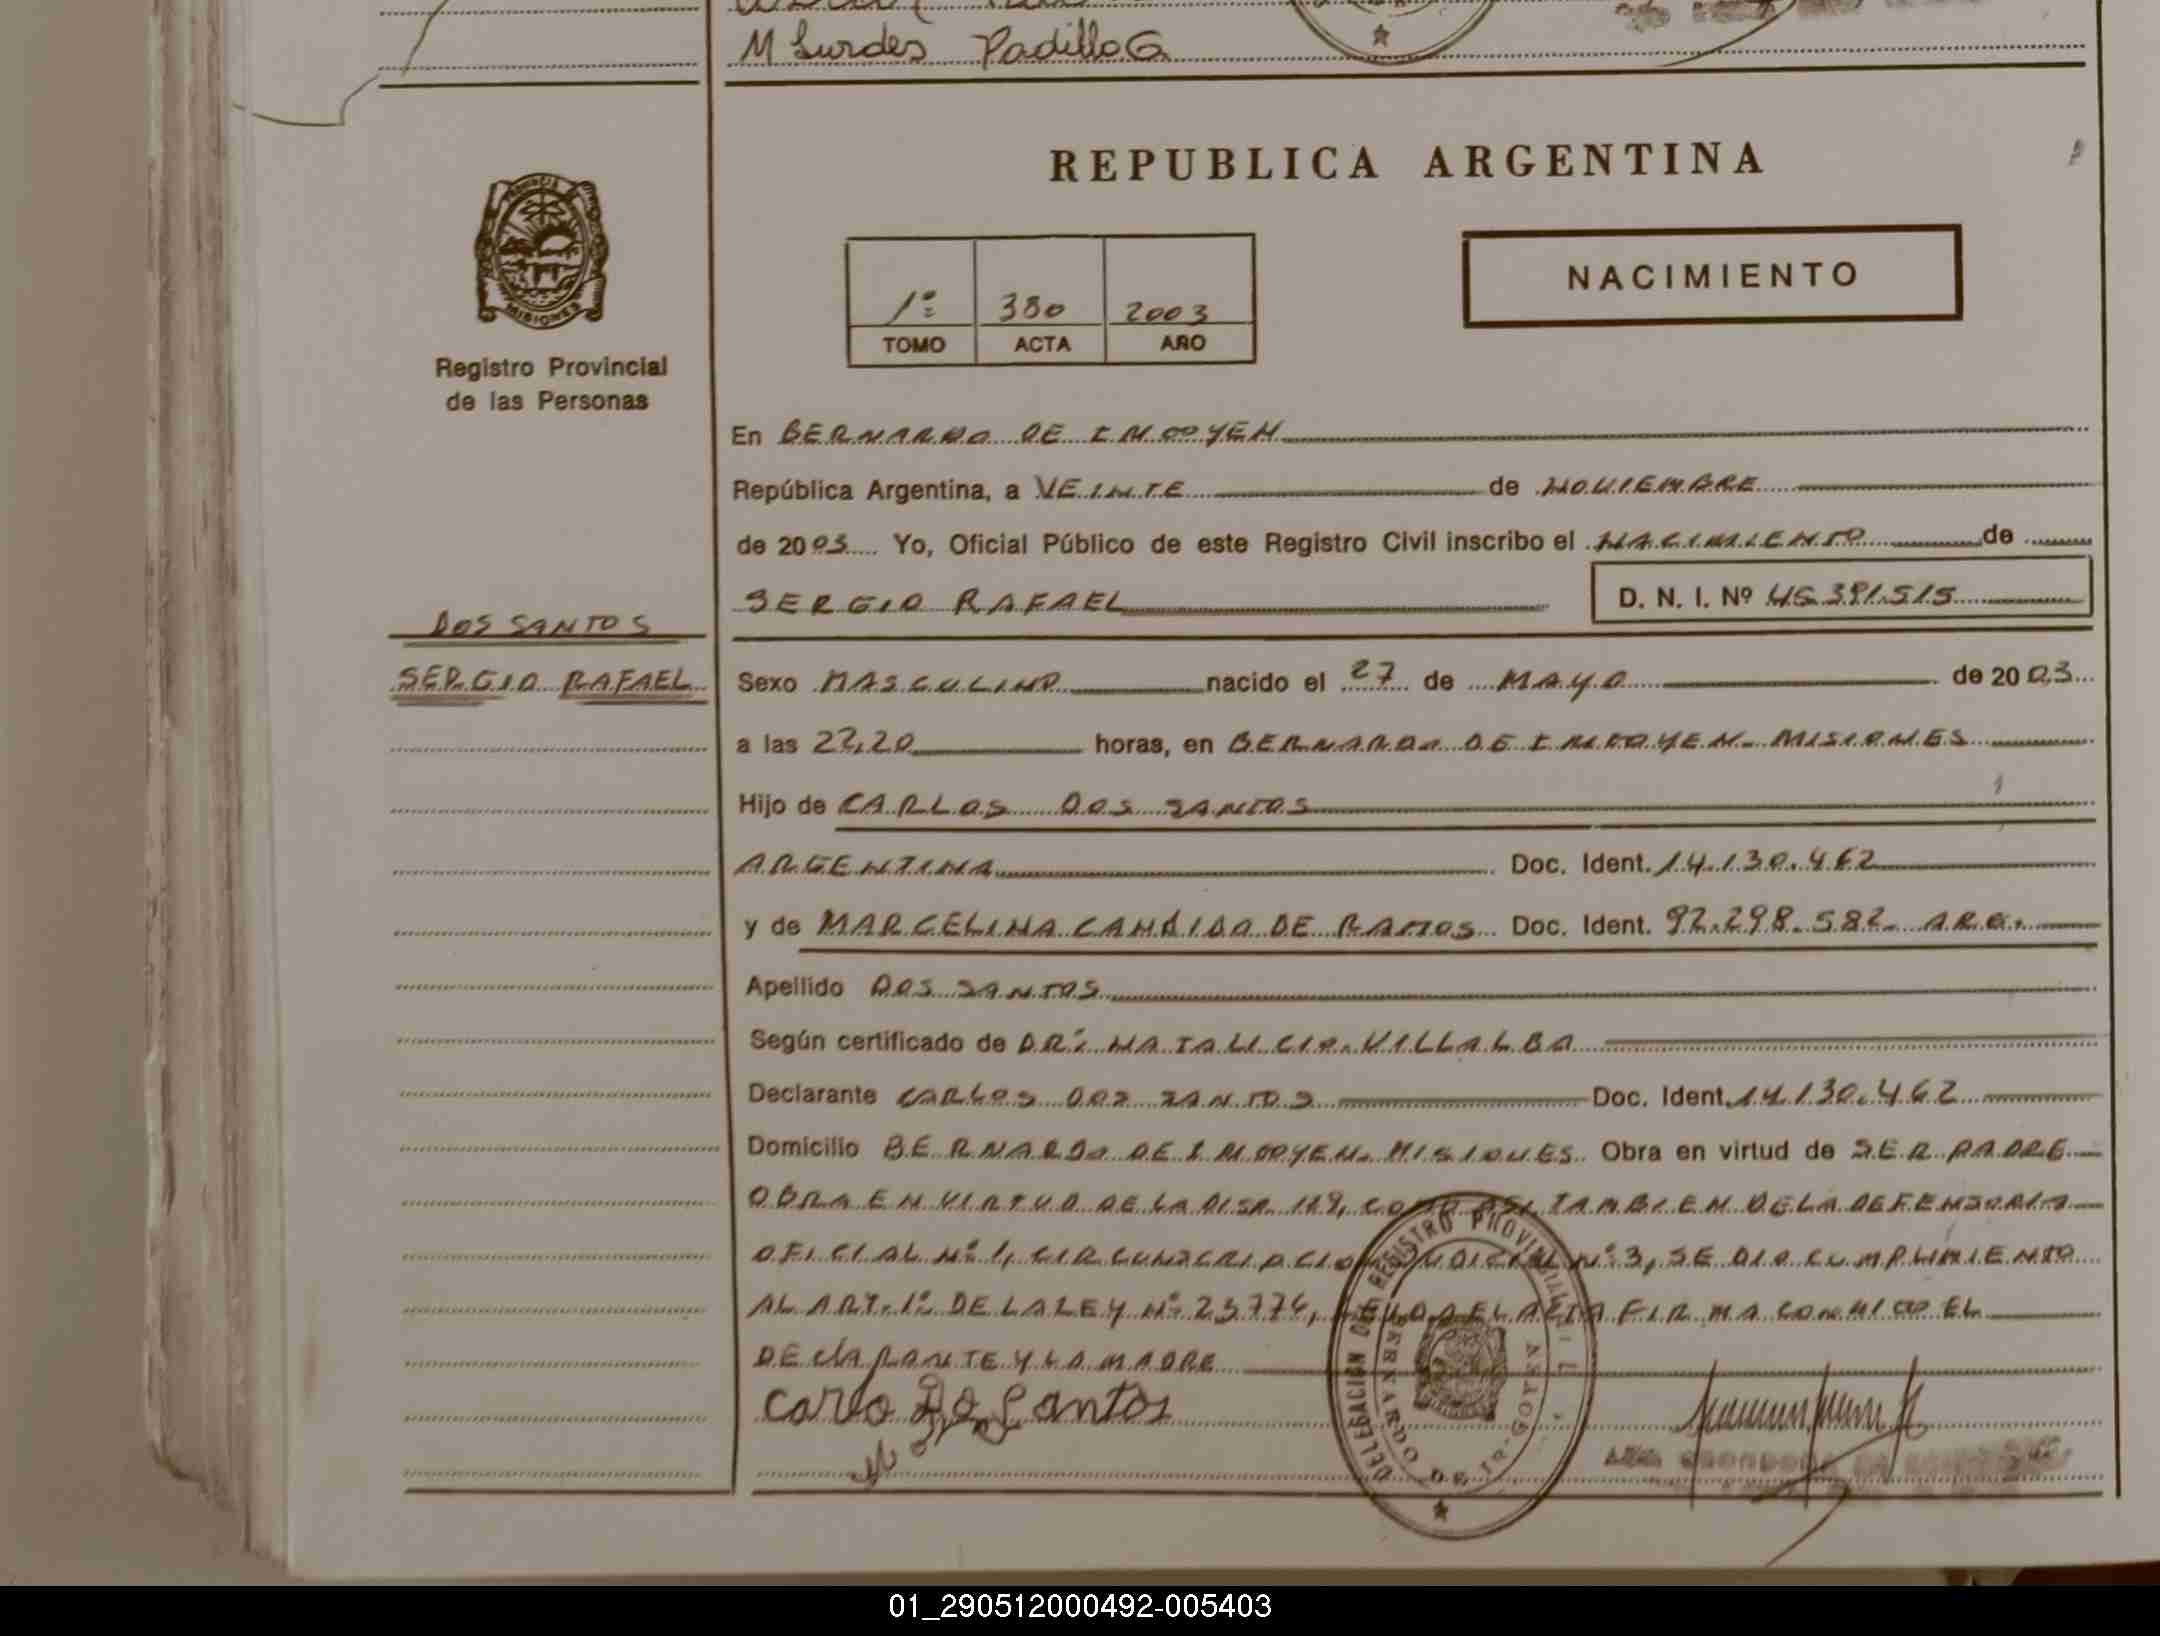 M Lurdes Padilla G
REPUBLICA ARGENTINA
PROVINCIA
MISIONES
Registro Provincial
de las Personas
NACIMIENTO
1º 380 2003
TOMO ACTA AÑO
En BERNARDO DE IRIGOYEN
República Argentina, a VEINTE de NOVIEMBRE
de 2003 Yo, Oficial Público de este Registro Civil inscribo el NACIMIENTO de
SERGIO RAFAEL D. N. I. Nº 45.391.515
DOS SANTOS
SERGIO RAFAEL
Sexo MASCULINO nacido el 27 de MAYO de 2003
a las 22,20 horas, en BERNARDO DE IRIGOYEN - MISIONES
Hijo de CARLOS DOS SANTOS
ARGENTINA Doc. Ident. 14.130.462
y de MARCELINA CANDIDA DE RAMOS Doc. Ident. 92.298.582 - ARG.
Apellido DOS SANTOS
Según certificado de DR. NATALICIO VILLALBA
Declarante CARLOS DOS SANTOS Doc. Ident. 14.130.462
Domicilio BERNARDO DE IRIGOYEN - MISIONES Obra en virtud de SER PADRE
OBRA EN VIRTUD DE LA DISP. 119, COMO ASI TAMBIEN DE LA DEFENSORIA
OFICIAL Nº 1, CIRCUNSCRIPCION JUDICIAL Nº 3, SE DIO CUMPLIMIENTO
AL ART. 1º DE LA LEY Nº 23776, LEIDA EL ACTA FIRMA CONMIGO EL
DECLARANTE Y LA MADRE
Carlo Do Santos
DELEGACION DEL REGISTRO PROVINCIAL
BERNARDO DE IRIGOYEN
01_290512000492-005403